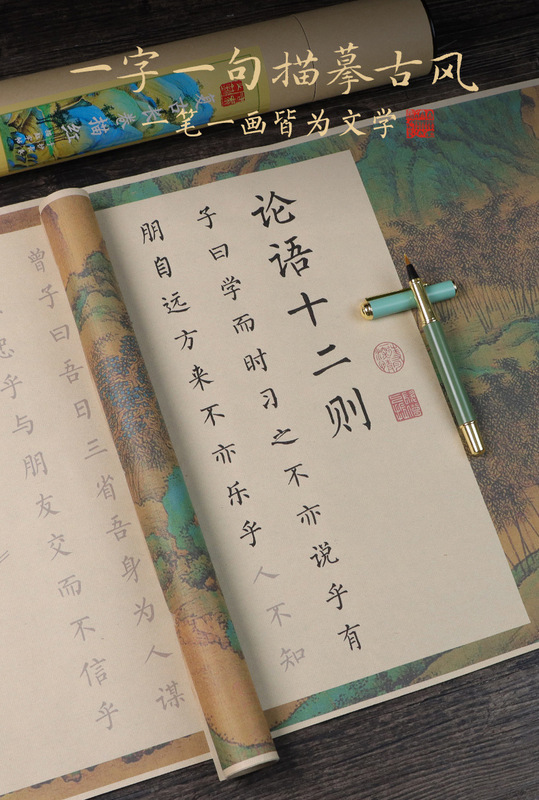 一字一句描摹古风
一笔一画皆为文学
论语十二则
子曰学而时习之不亦说乎有
朋自远方来不亦乐乎人不知
曾子曰吾日三省吾身为人谋
忠乎与朋友交而不信乎